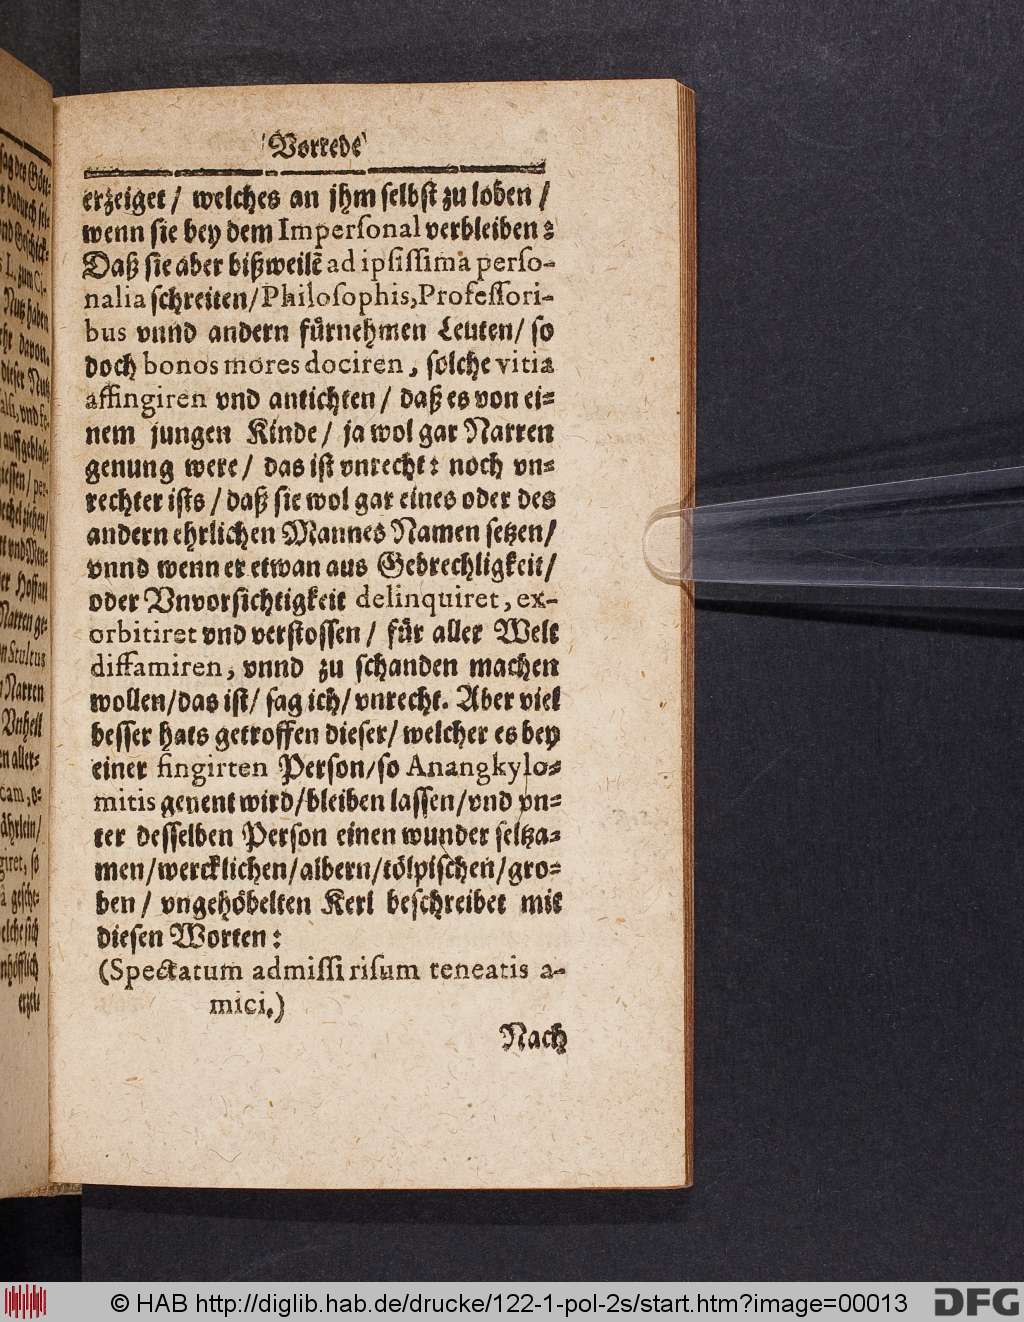 Vorrede
erzeiget / welches an jhm selbst zu loben /
wenn sie bey dem Impersonal verbleiben:
Daß sie aber bißweilẽ ad ipsissima perso-
nalia schreiten/Philosophis,Professori-
bus vnnd andern fürnehmen Leuten/ so
doch bonos mores dociren, solche vitia
affingiren vnd antichten / daß es von ei-
nem jungen Kinde / ja wol gar Narren
genung were / das ist vnrecht: noch vn-
rechter ists / daß sie wol gar eines oder des
andern ehrlichen Mannes Namen setzen/
vnnd wenn er etwan aus Gebrechligkeit/
oder Vnvorsichtigkeit delinquiret, ex-
orbitiret vnd verstossen / für aller Welt
diffamiren, vnnd zu schanden machen
wollen/das ist/ sag ich/ vnrecht. Aber viel
besser hats getroffen dieser/ welcher es bey
einer fingirten Person/so Anangkylo-
mitis genent wird/bleiben lassen/vnd vn-
ter desselben Person einen wunder seltza-
men/wercklichen/albern/tölpischen/gro-
ben / vngehöbelten Kerl beschreibet mit
diesen Worten:
(Spectatum admissi risum teneatis a-
mici.)
Nach
© HAB http://diglib.hab.de/drucke/122-1-pol-2s/start.htm?image=00013
DFG